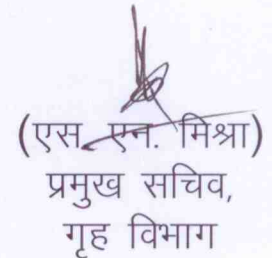 (एस. एन. मिश्रा)
प्रमुख सचिव,
गृह विभाग